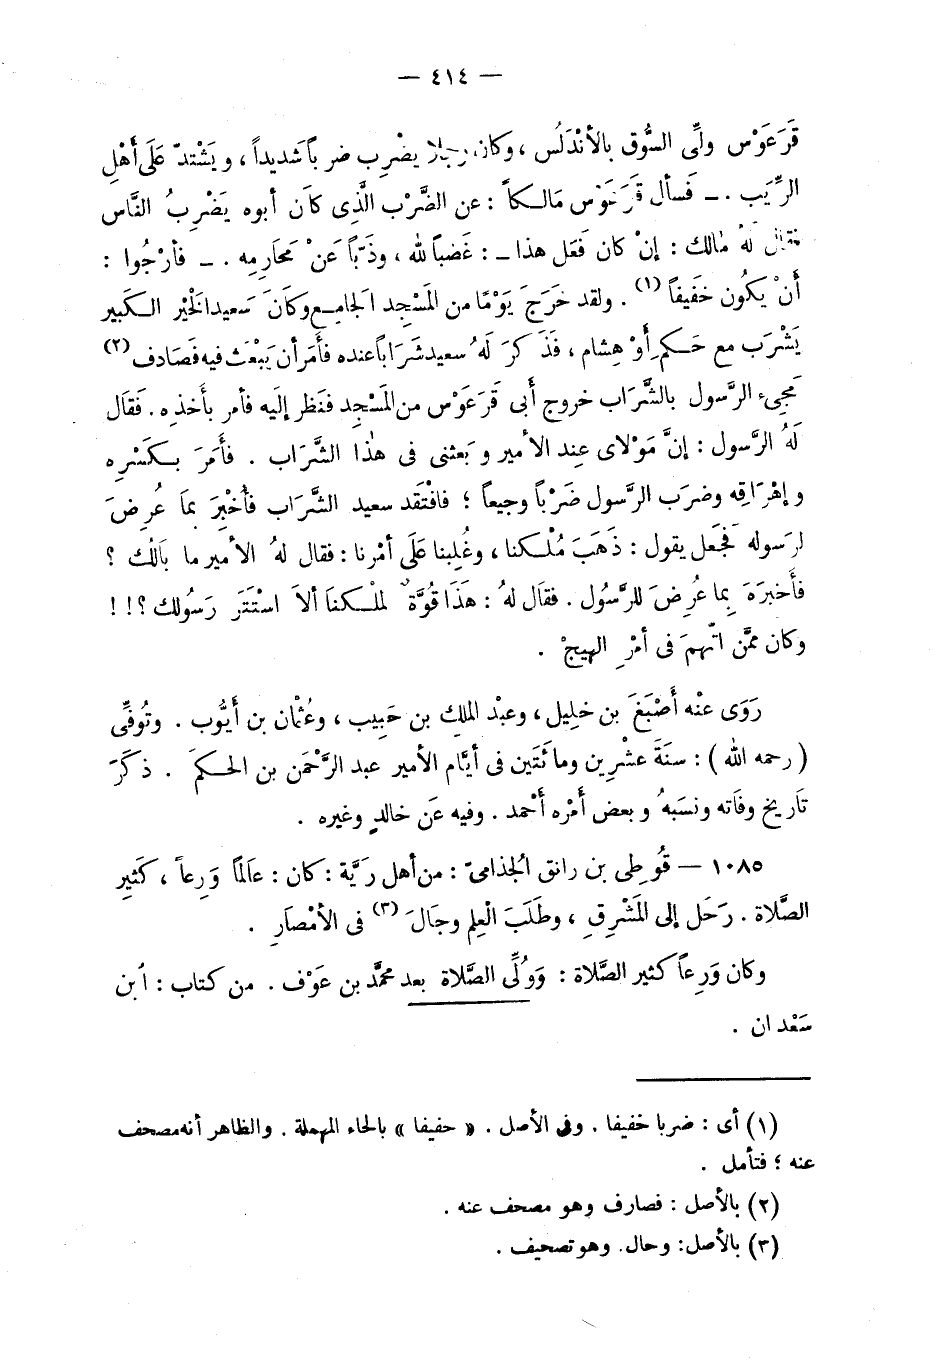 — ٤١٤ —
قَرَعَوْس ولِّى السُّوق بالأنْدَلُس ، وكان رجلا يضْرِب ضرباً شديداً ، ويَشْتدّ عَلَى أهْلِ
الرِّيَب . ــ فَسأل قَرَعَوْس مَالكاً : عن الضَّرْب الَّذِى كَانَ أبوه يَضْرِبُ النَّاس
فقال لهُ مالك : إنْ كان فَعَل هذا ــ : غَضباً لله ، وذَبّاً عَنْ مَحَارِمِه . ــ فأرْجُوا :
أنْ يكُون خَفيفاً (١) . ولقد خَرَجَ يَوْمًا من المَسْجِد الجامِع وكَانَ سَعيد الخَيْر الكبير
يَشْرَب مع حَكمٍ أوْ هِشام ، فَذَكرَ لَهُ سعيد شَرَاباً عنده فأَمَر أن يَبْعَث فيه فَصَادف (٢)
مَجِىء الرَّسول بالشَّرَاب خروج أَبى قَرعَوْس من المَسْجِد فنَظر إلَيه فأمر بأَخذِه . فَقَال
لَهُ الرَّسول : إنَّ مَوْلاى عِند الأمير وبَعثنى فى هذَا الشَّرَاب . فأَمَرَ بكَسْرِه
وإهْرَاقِه وضَرب الرَّسول ضَرْباً وجيعاً ؛ فافْتَقد سعيد الشَّرَاب فأُخْبِرَ بمَا عُرِضَ
لرَسوله فَجعل يقول : ذَهَبَ مُلْكنا ، وغُلِبنا عَلَى أمْرنا : فقال لهُ الأمير ما بَالُك ؟
فأَخبرَهَ بِما عُرِضَ للرَّسُول . فقَال لهُ : هَذَا قُوَّةٌ لمُلْكنَا ألاَ اسْتَتَر رَسُولك ؟!!
وكان ممَّن اتّهِمَ فى أمْرِ الهيجْ .
رَوَى عنْه أَصْبَغَ بن خليل ، وعبْد الملك بن حَبِيب ، وعُثْمان بن أيُّوب . وتُوفِّى
( رحمه الله ) : سنَةَ عشْرِين ومائَتَين فى أيَّام الأمير عبد الرَّحْمَن بن الحكمَ . ذكَرَ
تاَريخ وفَاته ونسَبهُ وبعض أَمْره أَحْمد . وفيه عَن خالدٍ وغيره .
١٠٨٥ — قُوطِى بن رانق الجُذامىّ : من أهل رَيَّة : كان : عَالمًا وَرِعاً ، كَثِير
الصَّلاة . رَحَل إلى المَشْرِقِ ، وطَلَبَ الْعِلم وجَالَ (٣) فى الأمْصَارِ .
وكان وَرِعاً كثير الصَّلاة : وَوُلِّى الصَّلاة بعد محمَّد بن عَوْف . من كتاب : ابن
سَعْدان .
(١) أى : ضربا خفيفا . وفى الأصل . « حفيفا » بالحاء المهملة . والظاهر أنه مصحف
عنه ؛ فتأمل .
(٢) بالأصل : فصارف وهو مصحف عنه .
(٣) بالأصل: وحال. وهو تصحيف .